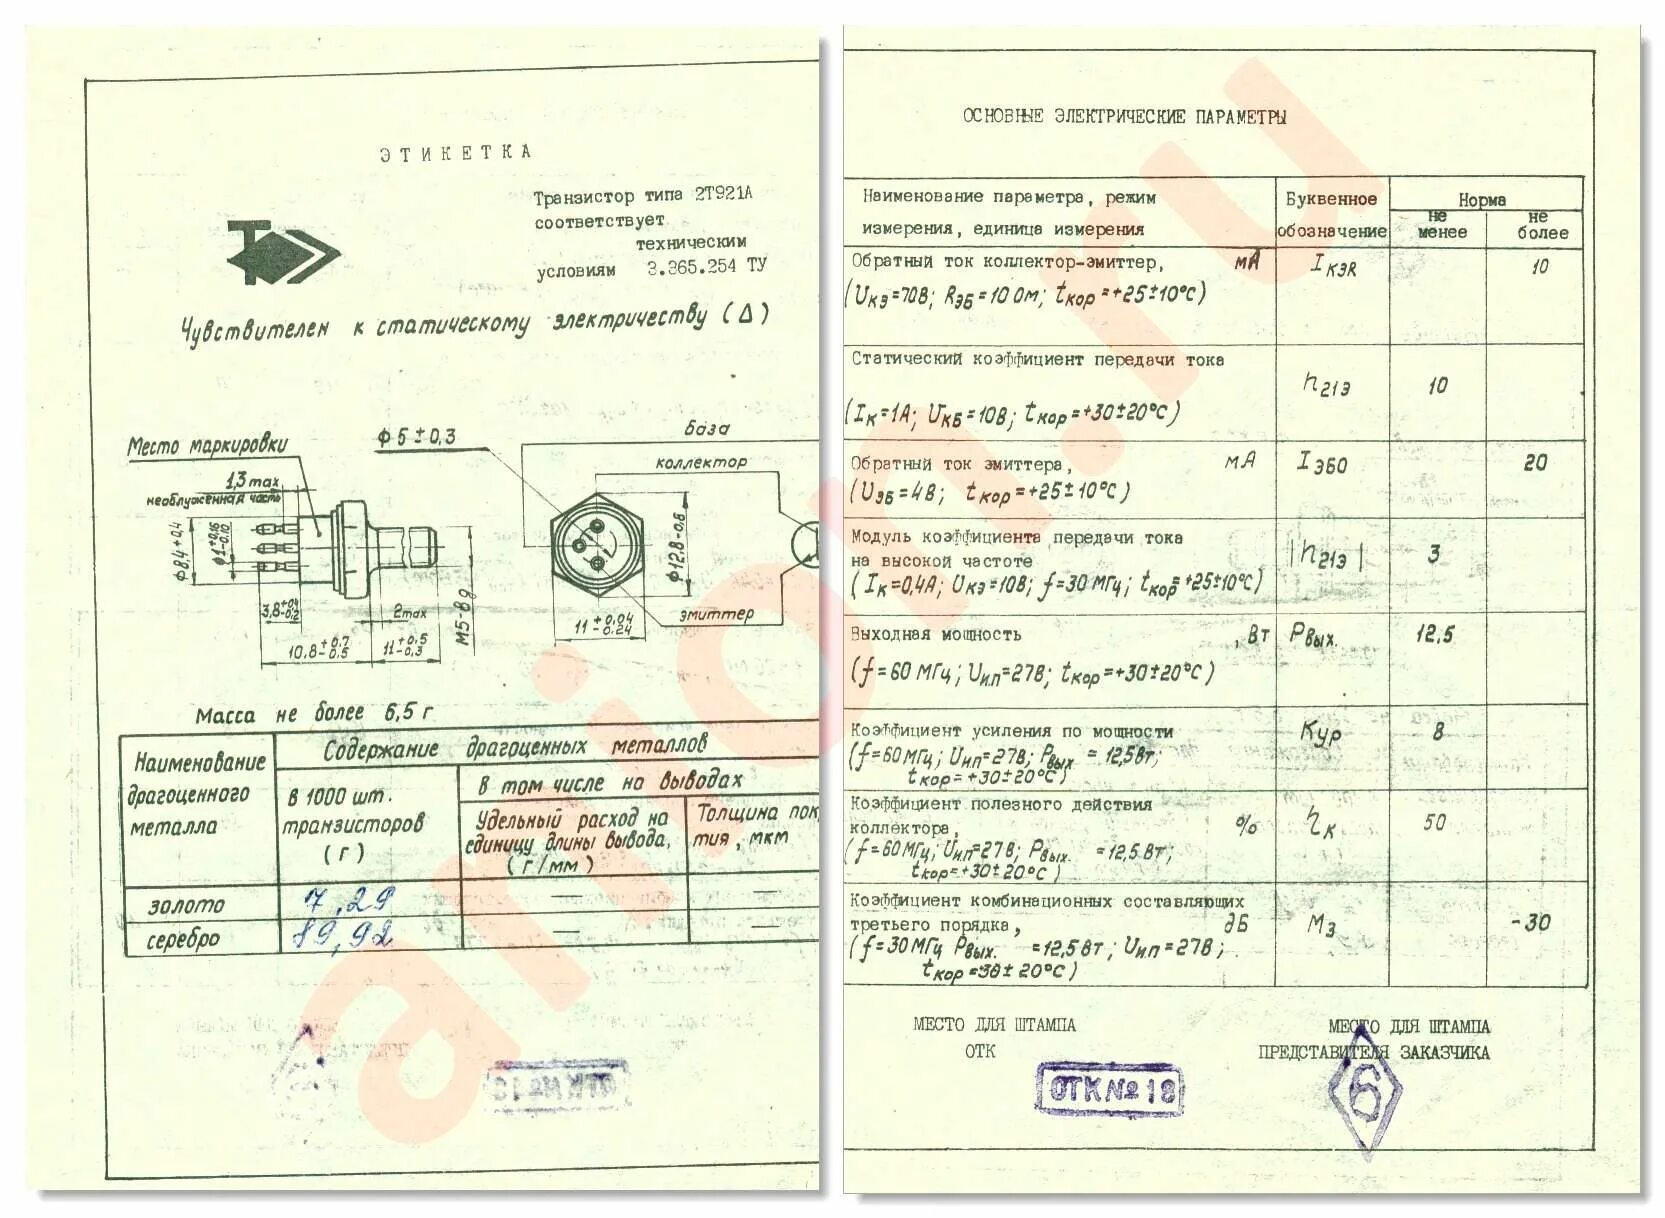 ЭТИКЕТКА
Транзистор типа 2Т921А
соответствует
техническим
условиям 3.365.254 ТУ
Чувствителен к статическому электричеству (Δ)
Место маркировки
1,3 max
необлуженная часть
ф8,4+0,4
ф1+0,16-0,10
3,8+0,4-0,2
10,8+0,7-0,5
2max
11+0,5-0,3
М5-8g
ф5±0,3
База
коллектор
эмиттер
ф12,8-0,8
11+0,04-0,24
Масса не более 6,5 г
Наименование драгоценного металла
Содержание драгоценных металлов
в 1000 шт. транзисторов (г)
В том числе на выводах
Удельный расход на единицу длины вывода, (г/мм)
Толщина пок
тия, мкм
золото 7,29 — —
серебро 89,92 — —
ОСНОВНЫЕ ЭЛЕКТРИЧЕСКИЕ ПАРАМЕТРЫ
Наименование параметра, режим измерения, единица измерения
Буквенное обозначение
Норма
не менее
не более
Обратный ток коллектор-эмиттер, мА IКЭR 10
(UКЭ=70В; RЭБ=10 Ом; tкор=+25±10°С)
Статический коэффициент передачи тока h21Э 10
(IК=1А; UКБ=10В; tкор=+30±20°С)
Обратный ток эмиттера, мА IЭБО 20
(UЭБ=4В; tкор=+25±10°С)
Модуль коэффициента передачи тока
на высокой частоте |h21Э| 3
(IК=0,4А; UКЭ=10В; f=30 МГц; tкор=+25±10°С)
Выходная мощность , Вт Рвых. 12,5
(f=60 МГц; Uи.п=27В; tкор=+30±20°С)
Коэффициент усиления по мощности Кур 8
(f=60МГц; Uи.п=27В; Рвых = 12,5Вт;
tкор=+30±20°С)
Коэффициент полезного действия
коллектора, % ηК 50
(f=60МГц; Uи.п=27В; Рвых. =12,5 Вт;
tкор=+30±20°С)
Коэффициент комбинационных составляющих
третьего порядка, дБ М3 -30
(f=30МГц Рвых. =12,5 Вт; Uи.п=27В;
tкор=30±20°С)
МЕСТО ДЛЯ ШТАМПА
ОТК
МЕСТО ДЛЯ ШТАМПА
ПРЕДСТАВИТЕЛЯ ЗАКАЗЧИКА
ОТК №18
6
arion.ru